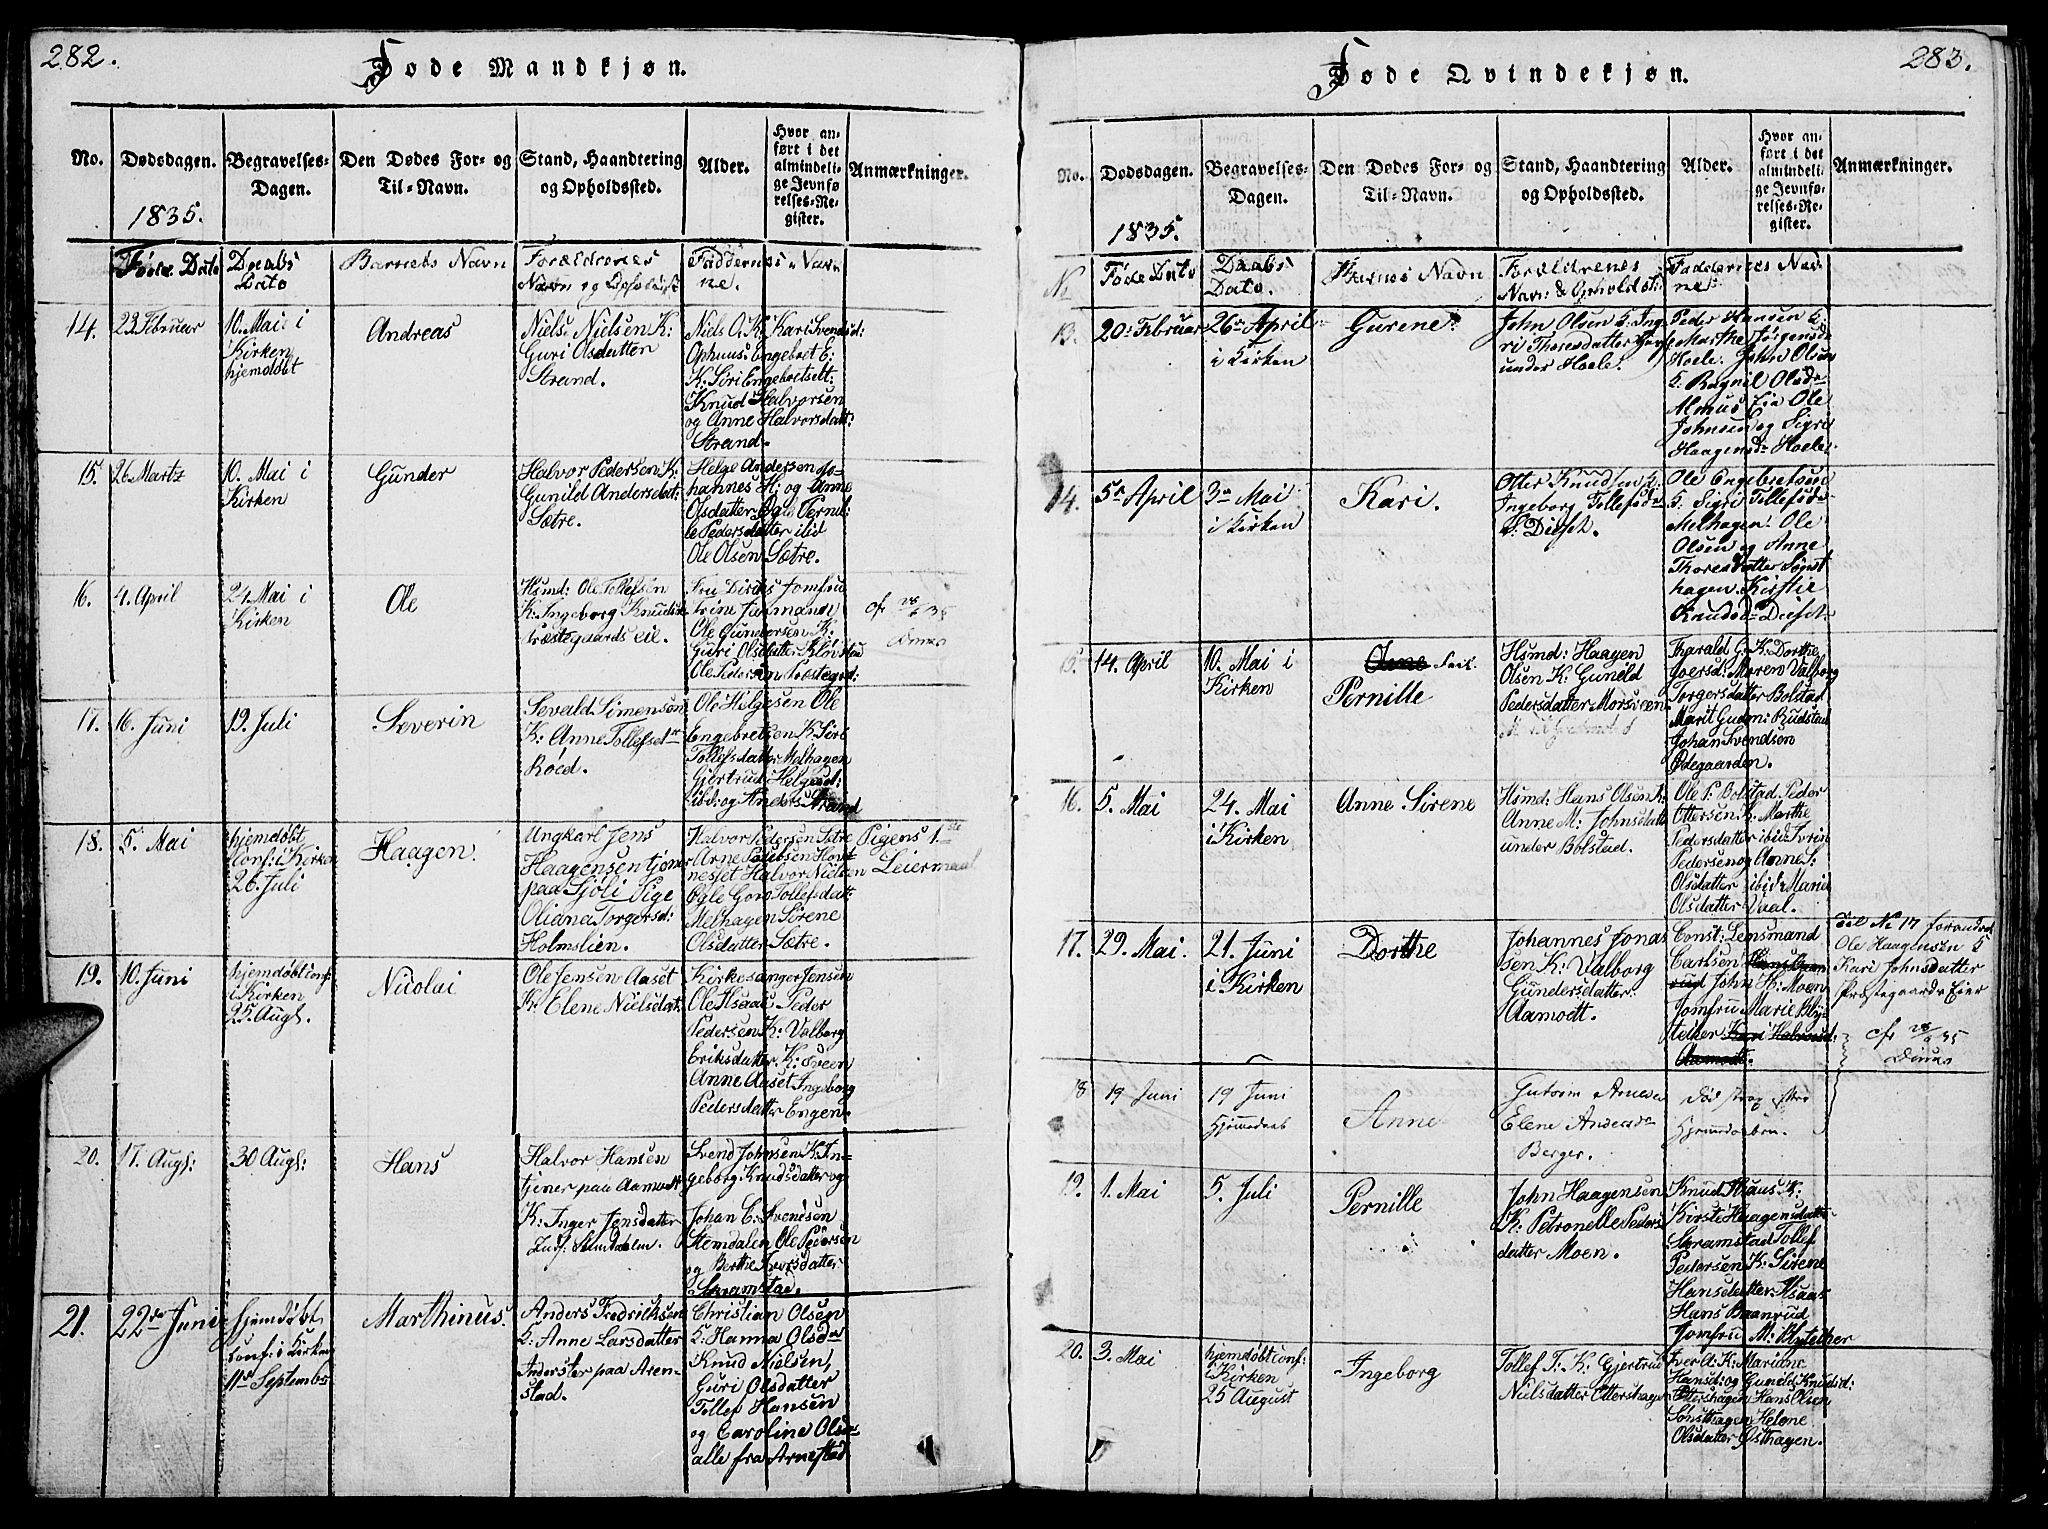 282.
Føde Mandkjøn.
No.
Dødsdagen.
1835.
Begravelses-
Dagen.
Den Dødes For- og
Til-Navn.
Stand, Haandtering
og Opholdssted.
Alder.
Hvor an-
ført i det
almindeli-
ge Jevnfø
relses-Re-
gister.
Anmærkninger.
Føde Dato
Daabs
Dato
Barnets Navn
Forældrenes
Navn og Opholdst
Faddernes Nav
ne.
14.
23 Februar
10. Mai i
Kirken
hjemdøbt
Andreas
Niels Nielsen K:
Guri Olsdatter
Strand.
Niels O. K: Kari Svendsd:
Ophuus Engebret E:
K: Siri Engebretsdt:
Knud Halvorsen
og Anne Halvorsdatt:
Strand.
15.
26 Martz
10. Mai i
Kirken
Gunder
Halvor Pedersen K:
Gunild Andersdat:
Sætre.
Helge Andersen Jo-
hannes H: og Anne
Olsdatter Øgle Pernil-
le Pedersdatter ibid
Ole Olsen Sætre.
16.
4. April
24 Mai i
Kirken
Ole
Hsmd: Ole Tollefsen
K: Ingeborg Knudsdt
Præstegaards eie.
Fru Dircks Jomfru
trine
Ole Gundersen K:
Guri Olsdatter Kløvstad
Ole Pedersen Præstegrd:
17.
16. Juni
19. Juli
Severin
Sevald Simensen
K: Anne Tollefsdtr
Røed.
Ole Helgesen Ole
Engebretsen K: Siri
Tollefsdatter Melhagen
Gjertrud Helgesd:
ibd: og Anders Strand
18.
5. Mai
hjemdøbt
Conf: i Kirken
26. Juli
Haagen.
Ungkarl Jens
Haagensen tjener
paa Sjøli Pige
Oliana Torgersd:
Holmslien.
Halvor Pedersen Sætre
Arne Jacobsen Horn-
nesset Halvor Nielsen
Øgle Goro Tollefsdatt:
Melhagen Sirene
Olsdatter Sætre.
Pigens 1ste
Leiermaal
19.
10. Juni
hjemdøbt conf:
i Kirken
25. Augt.
Nicolai
Ole Jensen Aaset
K: Elene Nielsdat:
Kirkesanger Jensen
Ole Asaas Peder
Pedersen K: Valborg
Eriksdatter K: Sveen
Anne Aaset Ingeborg
Pedersdatter Engen.
20.
17. Augt:
30 Augt:
Hans
Halvor Hansen
tjener paa Aamodt
K: Inger Jonsdatter
Svend Johnsen K: In-
geborg Knudsdatter og
Johan E: Svendsen
Stemdalen Ole Pedersen
og Berthe Iversdatter
Skramstad.
21.
22de Juni
hjemdøbt
conf: i Kirken
11te Septembr
Marthinus.
Anders Fredriksen
K: Anne Larsdatter
Inderster paa Aren-
stad.
Christian Olsen
K: Hanna Olsda
Knud Nielsen,
Guri Olsdatter
Tollef Hansen
og Caroline Olsd
alle fra Arnestad
283.
Føde Qvindekjøn.
No.
Dødsdagen.
1835.
Begravelses-
Dagen.
Den Dødes For- og
Til-Navn.
Stand, Haandtering
og Opholdssted.
Alder.
Hvor an-
ført i det
almindeli-
ge Jevnfø-
relses-Re-
gister.
Anmærkninger.
No
Føde Dato
Daabs
Dato.
Barnes Navn
Forældrenes
Navn & Opholdst:
Faddernes Nav
ne:
13.
20de Februar
26de April
i Kirken
Gurene
John Olsen K: Ing
ri Thoresdatter
under Hoele.
Peder Hansen K:
Marthe Jørgensd
Hoele. John Olsen
K: Ragnil Olsda
Almus Eie Ole
Johnsen og Sigri
Haagensd: Hoele.
14.
5te April
3de Mai
i Kirken
Kari.
Otter Knudsen K:
Ingeborg Tollefsd
Deset.
Ole Engebretsen
K: Sigri Tollefsda
Melhagen. Ole
Olsen og Anne
Thoresdatter
hagen Kirstie
Knudsd: Deset.
15.
14. April
10. Mai i
Kirken
Pernille
Hsmd: Haagen
Olsen K: Gunild
Pedersdatter Morsveen
Tharald G: K: Dorthe
Joersd: Maren Valborg
Torgersdatter Bolstad
Marit Gudm: Rudstad
Johan Svendsen
Ødegaarden.
16.
5. Mai
24. Mai
i Kirken
Anne Sirene
Hsmd: Hans Olsen K:
Anne M: Johnsdatt
under Bolstad.
Ole P: Bolstad Peder
Ottersen K: Marthe
Pedersdatter ibid: Iver
Pedersen og Anne
Olsdatter ibid: Marie
Olsdatter Vaal.
17.
29. Mai.
21. Juni
i Kirken
Dorthe
Johannes Jonas
sen K: Valborg
Gundersdatter
Aamodt.
Const: Lensmand
Carlsen
John H: Moen
Jomfru Marie Bly
tecker Kari Halvorsd:
Aamodt.
Til No 17 forandret
Ole Haagensen
Kari Johnsdatter
Præstegaards Eier
18
19 Juni
19 Juni
Hjemmedaab
Anne
Guttorm Arnesen
Elene Andersda
Berger.
Død strax efter
Hjemmedaaben.
19.
1. Mai
5. Juli
Pernille
John Haagensen
K: Petronelle Peders
datter Moen.
Knud K:
Kirste Haagensdatter
Skramstad Tollef
Pedersen K: Sirene
Hansdatter Asaas
Hans Baanrud
Jomfru M: Blytecher
20.
3. Mai
hjemdøbt conf:
i Kirken
25 August
Ingeborg
Tollef T: K: Gjertrud
Nielsdatter Ottershagen
Iver A: K: Mariane
Hansd: og Gunild Knudsd:
Ottershagen Hans Olsen
Sønsthagen Helene
Olsdatter Østhagen.